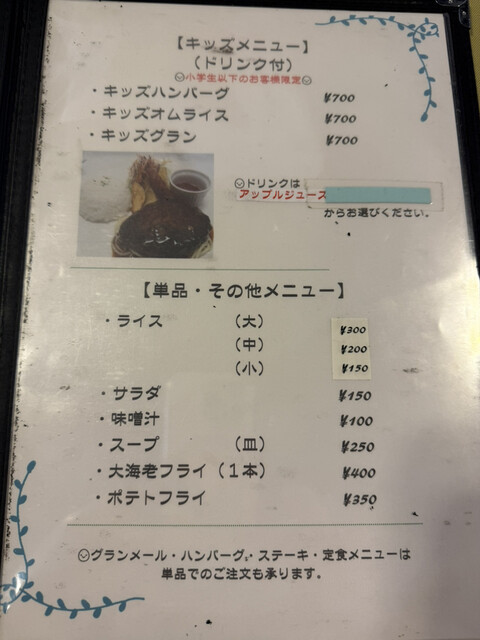 【キッズメニュー】
（ドリンク付）
小学生以下のお客様限定
・キッズハンバーグ ¥700
・キッズオムライス ¥700
・キッズグラン ¥700
ドリンクは
アップルジュース
からお選びください。
【単品・その他メニュー】
・ライス （大） ¥300
（中） ¥200
（小） ¥150
・サラダ ¥150
・味噌汁 ¥100
・スープ （皿） ¥250
・大海老フライ（1本） ¥400
・ポテトフライ ¥350
グランメール・ハンバーグ・ステーキ・定食メニューは
単品でのご注文も承ります。